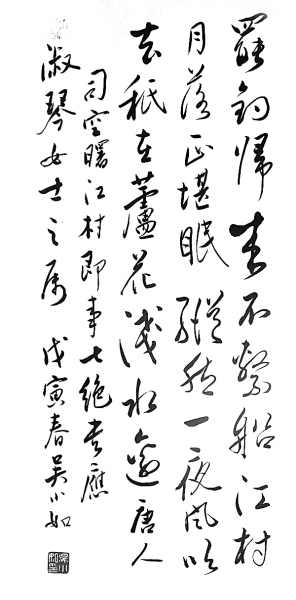 罷釣歸來不繫船江村
月落正堪眠縱然一夜風吹
去祇在蘆花淺水邊唐人
司空曙江村即事七絕書應
淑琴女士之属 戊寅春吴小如